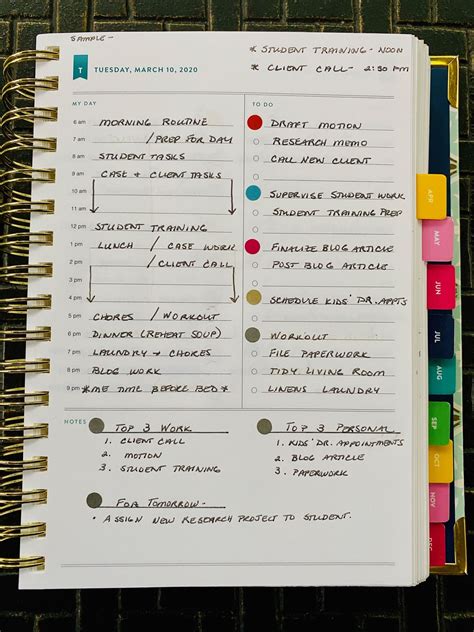 SAMPLE -
* STUDENT TRAINING - NOON
T TUESDAY, MARCH 10, 2020
* CLIENT CALL - 2:30 PM
MY DAY
6 am MORNING ROUTINE
7 am / PREP FOR DAY
8 am STUDENT TASKS
9 am CASE & CLIENT TASKS
10 am
11 am
12 pm STUDENT TRAINING
1 pm LUNCH / CASE WORK
2 pm / CLIENT CALL
3 pm
4 pm
5 pm CHORES / WORKOUT
6 pm DINNER (REHEAT SOUP)
7 pm LAUNDRY & CHORES
8 pm BLOG WORK
9 pm *ME TIME BEFORE BED*
TO DO
DRAFT MOTION
RESEARCH MEMO
CALL NEW CLIENT
SUPERVISE STUDENT WORK
STUDENT TRAINING PREP
FINALIZE BLOG ARTICLE
POST BLOG ARTICLE
SCHEDULE KIDS' DR. APPTS
WORKOUT
FILE PAPERWORK
TIDY LIVING ROOM
LINENS LAUNDRY
NOTES
TOP 3 WORK
1. CLIENT CALL
2. MOTION
3. STUDENT TRAINING
TOP 3 PERSONAL
1. KIDS' DR. APPOINTMENTS
2. BLOG ARTICLE
3. PAPERWORK
FOR TOMORROW -
• ASSIGN NEW RESEARCH PROJECT TO STUDENT.
APR
MAY
JUN
JUL
AUG
SEP
OCT
NOV
DEC